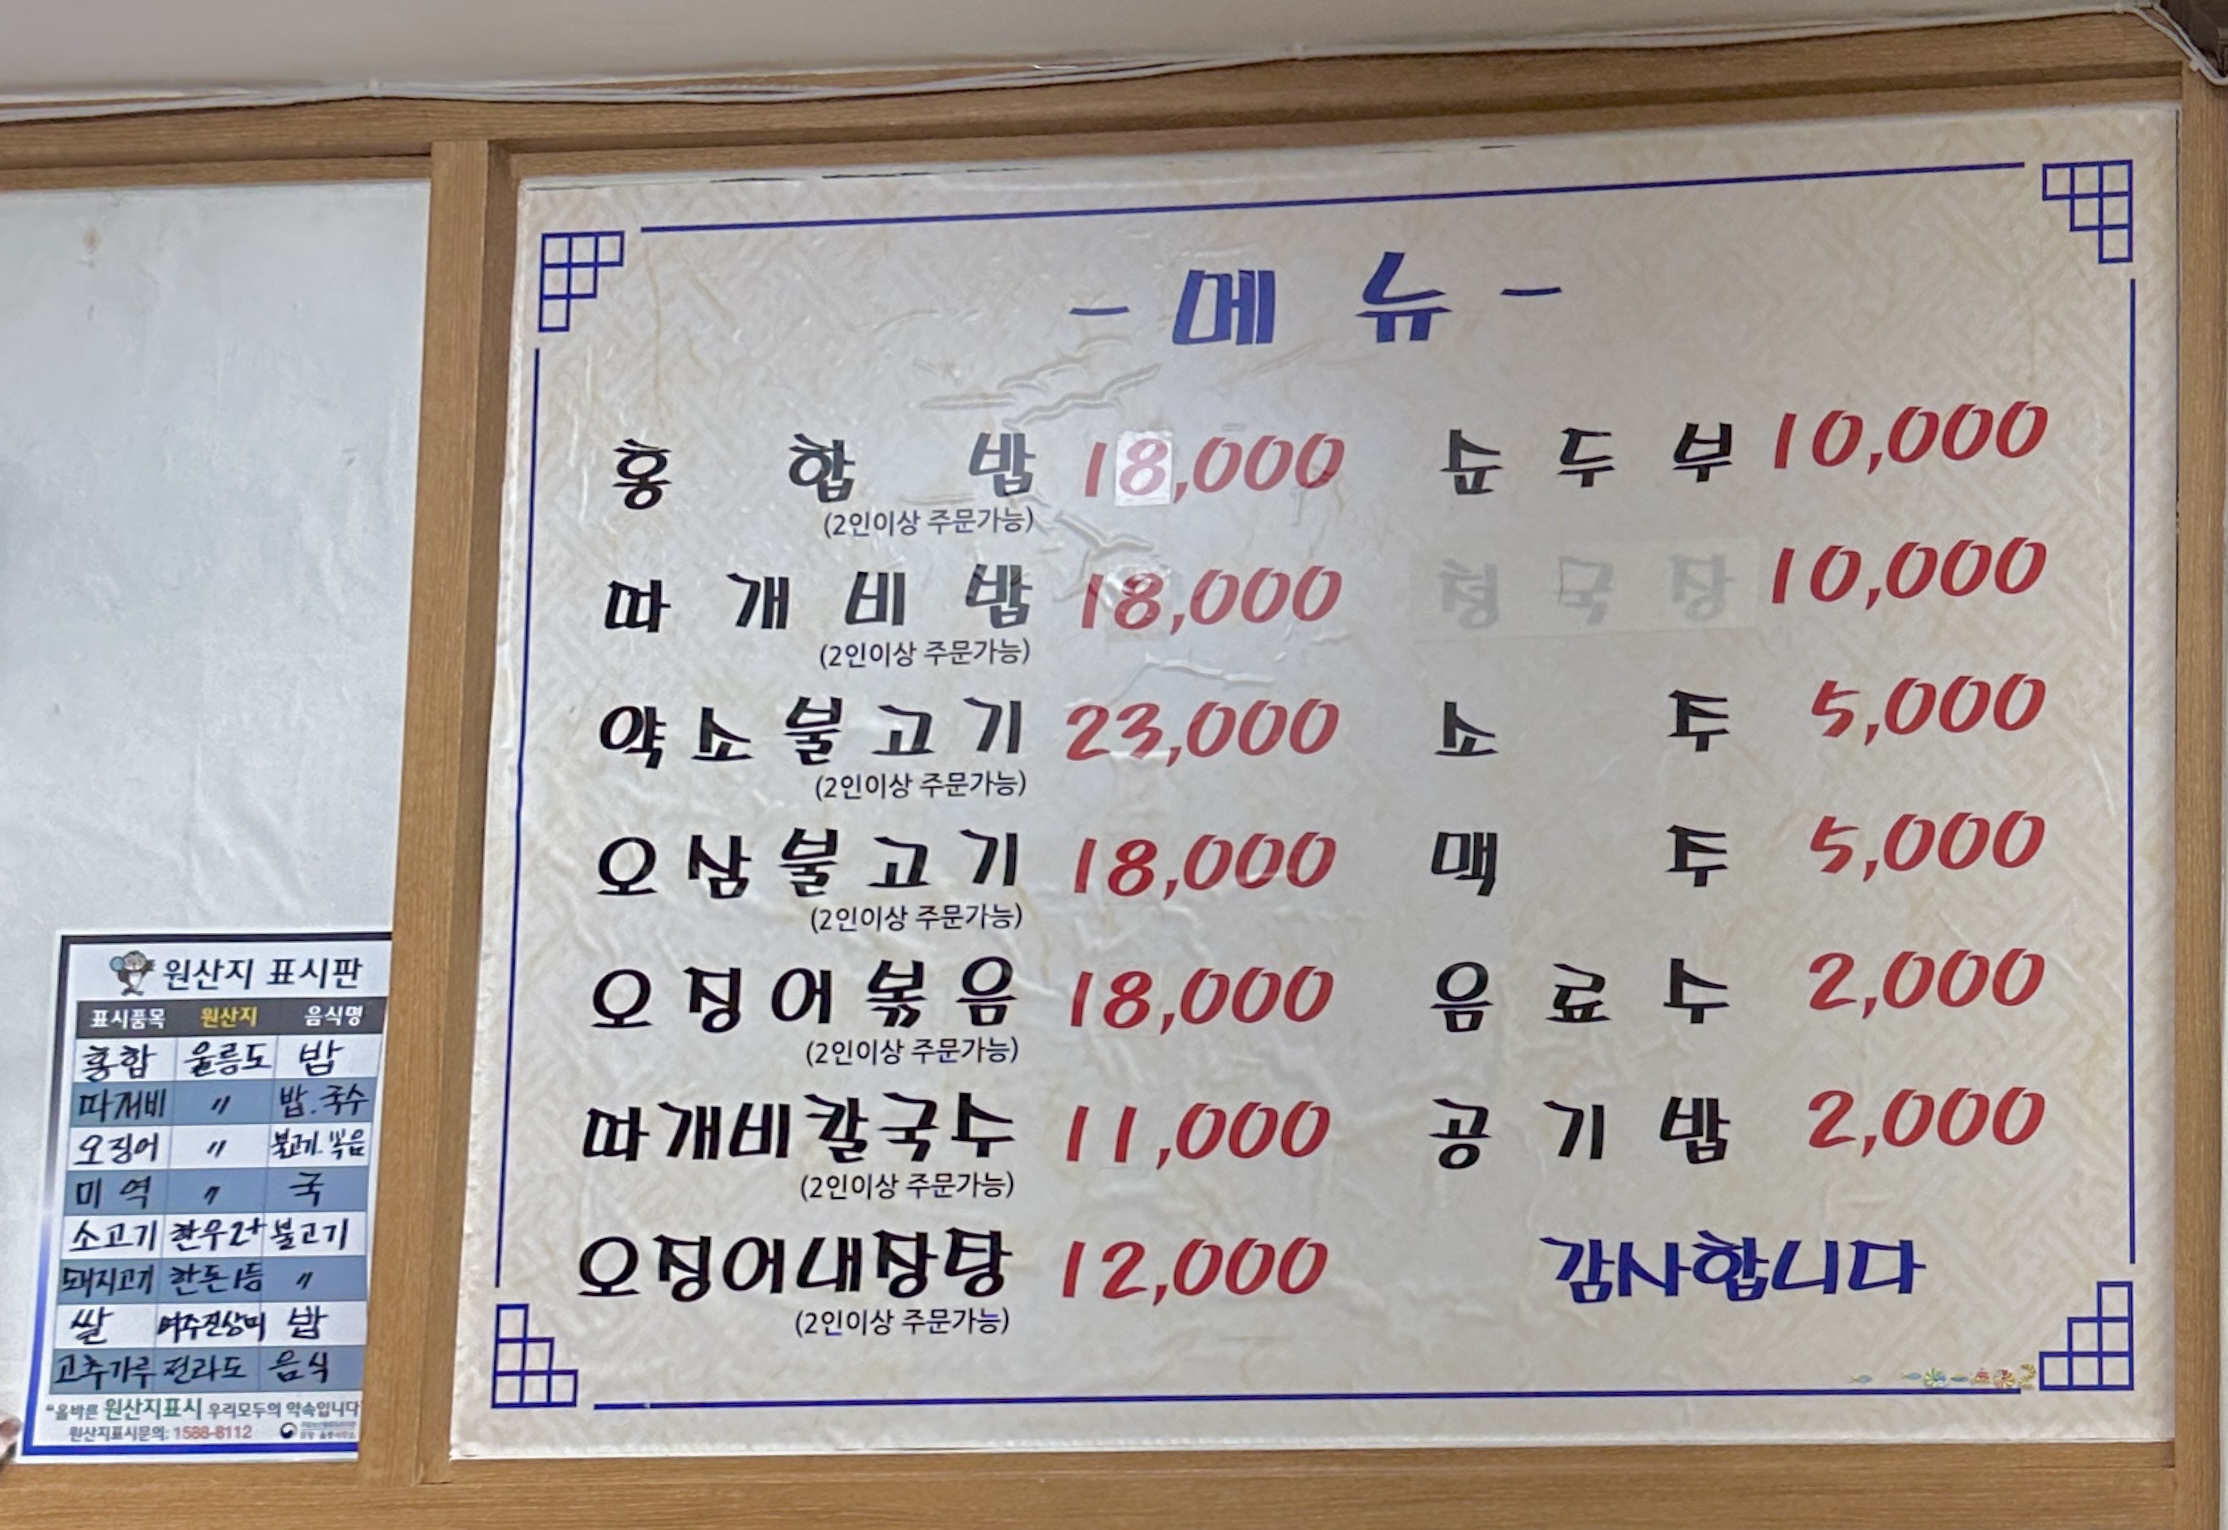 - 메 뉴 -
홍 합 밥 18,000
(2인이상 주문가능)
따 개 비 밥 18,000
(2인이상 주문가능)
약 소 불 고 기 23,000
(2인이상 주문가능)
오 삼 불 고 기 18,000
(2인이상 주문가능)
오 징 어 볶 음 18,000
(2인이상 주문가능)
따개비칼국수 11,000
(2인이상 주문가능)
오징어내장탕 12,000
(2인이상 주문가능)
순 두 부 10,000
청 국 장 10,000
소 주 5,000
맥 주 5,000
음 료 수 2,000
공 기 밥 2,000
감사합니다
원산지 표시판
표시품목 원산지 음식명
홍합 울릉도 밥
따개비 〃 밥.국수
오징어 〃 불고기.볶음
미역 〃 국
소고기 한우2+ 불고기
돼지고기 한돈1등 〃
쌀 여주진상미 밥
고추가루 전라도 음식
"올바른 원산지표시 우리모두의 약속입니다
원산지표시문의: 1588-8112